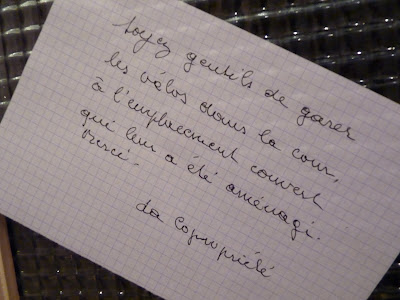 Soyez gentils de garer
les vélos dans la cour,
à l'emplacement couvert
qui leur a été aménagé.
Merci.
La Copropriété